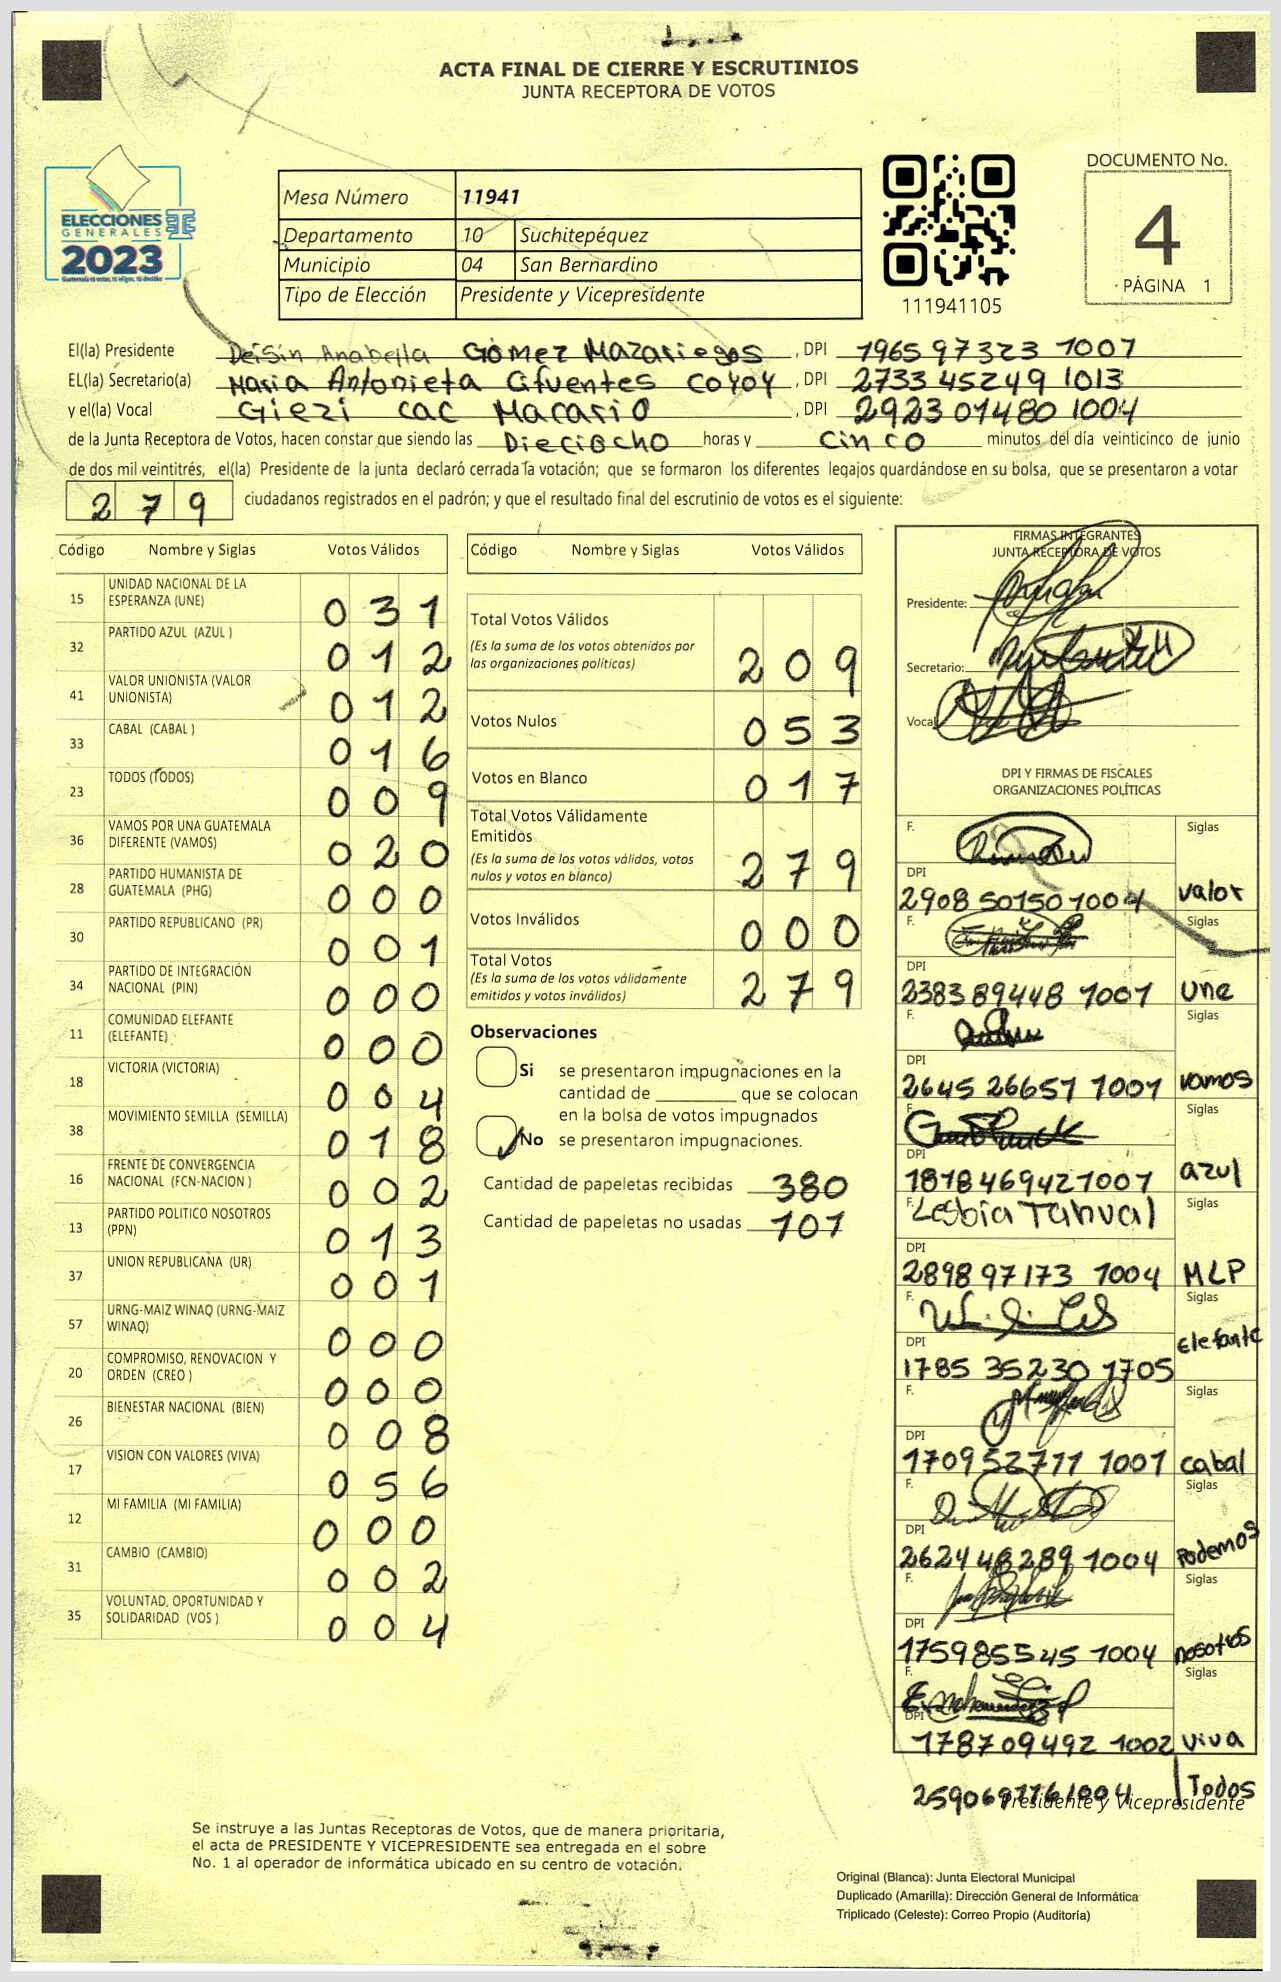 ACTA FINAL DE CIERRE Y ESCRUTINIOS
JUNTA RECEPTORA DE VOTOS
ELECCIONES
GENERALES
2023
Mesa Número 11941
Departamento 10 Suchitepéquez
Municipio 04 San Bernardino
Tipo de Elección Presidente y Vicepresidente
111941105
DOCUMENTO No.
4
PÁGINA 1
El(la) Presidente Deisin Anabella Gómez Mazariegos, DPI 1965 97323 1007
EL(la) Secretario(a) Maria Antonieta Cifuentes Coyoy, DPI 2733 45249 1013
y el(la) Vocal Giezi Cac Macario, DPI 2923 01480 1004
de la Junta Receptora de Votos, hacen constar que siendo las Dieciocho horas y Cinco minutos del día veinticinco de junio
de dos mil veintitrés, el(la) Presidente de la junta declaró cerrada la votación; que se formaron los diferentes legajos quardándose en su bolsa, que se presentaron a votar
279 ciudadanos registrados en el padrón; y que el resultado final del escrutinio de votos es el siguiente:
Código Nombre y Siglas Votos Válidos
15 UNIDAD NACIONAL DE LA ESPERANZA (UNE) 031
32 PARTIDO AZUL (AZUL ) 012
41 VALOR UNIONISTA (VALOR UNIONISTA) 012
33 CABAL (CABAL ) 016
23 TODOS (TODOS) 009
36 VAMOS POR UNA GUATEMALA DIFERENTE (VAMOS) 020
28 PARTIDO HUMANISTA DE GUATEMALA (PHG) 000
30 PARTIDO REPUBLICANO (PR) 001
34 PARTIDO DE INTEGRACIÓN NACIONAL (PIN) 000
11 COMUNIDAD ELEFANTE (ELEFANTE) 000
18 VICTORIA (VICTORIA) 004
38 MOVIMIENTO SEMILLA (SEMILLA) 018
16 FRENTE DE CONVERGENCIA NACIONAL (FCN-NACION ) 002
13 PARTIDO POLITICO NOSOTROS (PPN) 013
37 UNION REPUBLICANA (UR) 001
57 URNG-MAIZ WINAQ (URNG-MAIZ WINAQ) 000
20 COMPROMISO, RENOVACION Y ORDEN (CREO ) 000
26 BIENESTAR NACIONAL (BIEN) 008
17 VISION CON VALORES (VIVA) 056
12 MI FAMILIA (MI FAMILIA) 000
31 CAMBIO (CAMBIO) 002
35 VOLUNTAD, OPORTUNIDAD Y SOLIDARIDAD (VOS ) 004
Código Nombre y Siglas Votos Válidos
Total Votos Válidos
(Es la suma de los votos obtenidos por
las organizaciones políticas) 209
Votos Nulos 053
Votos en Blanco 017
Total Votos Válidamente
Emitidos
(Es la suma de los votos válidos, votos
nulos y votos en blanco) 279
Votos Inválidos 000
Total Votos
(Es la suma de los votos válidamente
emitidos y votos inválidos) 279
Observaciones
Si se presentaron impugnaciones en la
cantidad de ________ que se colocan
en la bolsa de votos impugnados
No se presentaron impugnaciones.
Cantidad de papeletas recibidas 380
Cantidad de papeletas no usadas 101
FIRMAS INTEGRANTES
JUNTA RECEPTORA DE VOTOS
Presidente:
Secretario:
Vocal
DPI Y FIRMAS DE FISCALES
ORGANIZACIONES POLÍTICAS
F. Siglas
DPI
2908 50150 1004 valor
F. Siglas
DPI
2383 89448 1001 une
F. Siglas
DPI
2645 26657 1001 vamos
F. Siglas
DPI
1878 46942 1001 azul
F. Lesbia Tahual Siglas
DPI
2898 97173 1004 MLP
F. Siglas
DPI
1785 35230 1705 Elefante
F. Siglas
DPI
1709 52711 1001 cabal
F. Siglas
DPI
2624 48289 1004 Podemos
F. Siglas
DPI
1759 85545 1004 nosotros
F. Siglas
DPI
1787 09492 1002 viva
1004 Todos
Presidente y Vicepresidente
Se instruye a las Juntas Receptoras de Votos, que de manera prioritaria,
el acta de PRESIDENTE Y VICEPRESIDENTE sea entregada en el sobre
No. 1 al operador de informática ubicado en su centro de votación.
Original (Blanca): Junta Electoral Municipal
Duplicado (Amarilla): Dirección General de Informática
Triplicado (Celeste): Correo Propio (Auditoría)